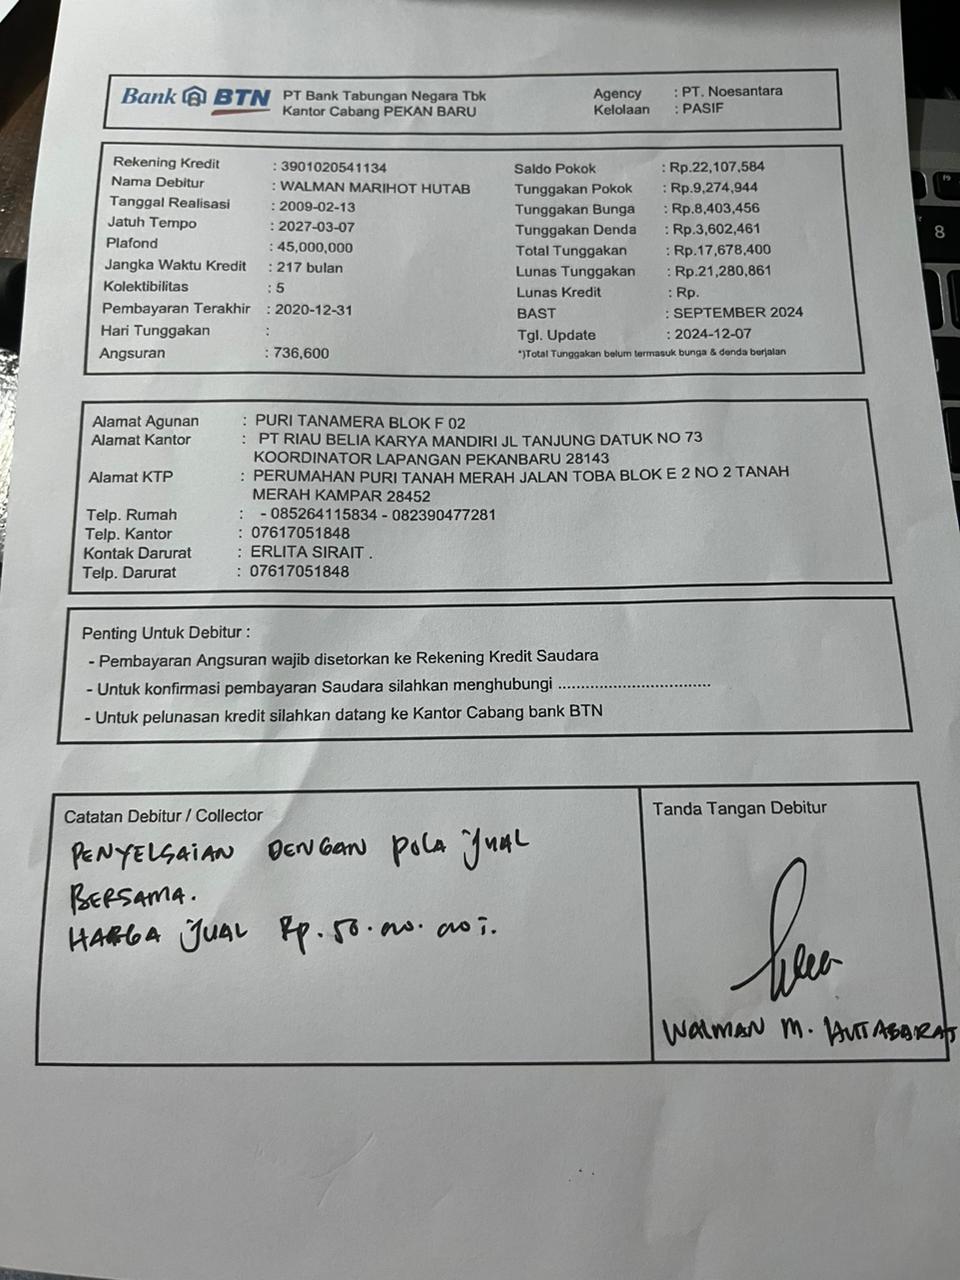 Bank BTN PT Bank Tabungan Negara Tbk
Kantor Cabang PEKAN BARU
Agency : PT. Noesantara
Kelolaan : PASIF
Rekening Kredit : 3901020541134
Nama Debitur : WALMAN MARIHOT HUTAB
Tanggal Realisasi : 2009-02-13
Jatuh Tempo : 2027-03-07
Plafond : 45,000,000
Jangka Waktu Kredit : 217 bulan
Kolektibilitas : 5
Pembayaran Terakhir : 2020-12-31
Hari Tunggakan :
Angsuran : 736,600
Saldo Pokok : Rp.22,107,584
Tunggakan Pokok : Rp.9,274,944
Tunggakan Bunga : Rp.8,403,456
Tunggakan Denda : Rp.3,602,461
Total Tunggakan : Rp.17,678,400
Lunas Tunggakan : Rp.21,280,861
Lunas Kredit : Rp.
BAST : SEPTEMBER 2024
Tgl. Update : 2024-12-07
*)Total Tunggakan belum termasuk bunga & denda berjalan
Alamat Agunan : PURI TANAMERA BLOK F 02
Alamat Kantor : PT RIAU BELIA KARYA MANDIRI JL TANJUNG DATUK NO 73
KOORDINATOR LAPANGAN PEKANBARU 28143
Alamat KTP : PERUMAHAN PURI TANAH MERAH JALAN TOBA BLOK E 2 NO 2 TANAH
MERAH KAMPAR 28452
Telp. Rumah : - 085264115834 - 082390477281
Telp. Kantor : 07617051848
Kontak Darurat : ERLITA SIRAIT .
Telp. Darurat : 07617051848
Penting Untuk Debitur :
- Pembayaran Angsuran wajib disetorkan ke Rekening Kredit Saudara
- Untuk konfirmasi pembayaran Saudara silahkan menghubungi .................................
- Untuk pelunasan kredit silahkan datang ke Kantor Cabang bank BTN
Catatan Debitur / Collector
PENYELSAIAN DENGAN POLA JUAL
BERSAMA.
HARGA JUAL Rp. 50.
Tanda Tangan Debitur
WALMAN M. HUTABARAT
8